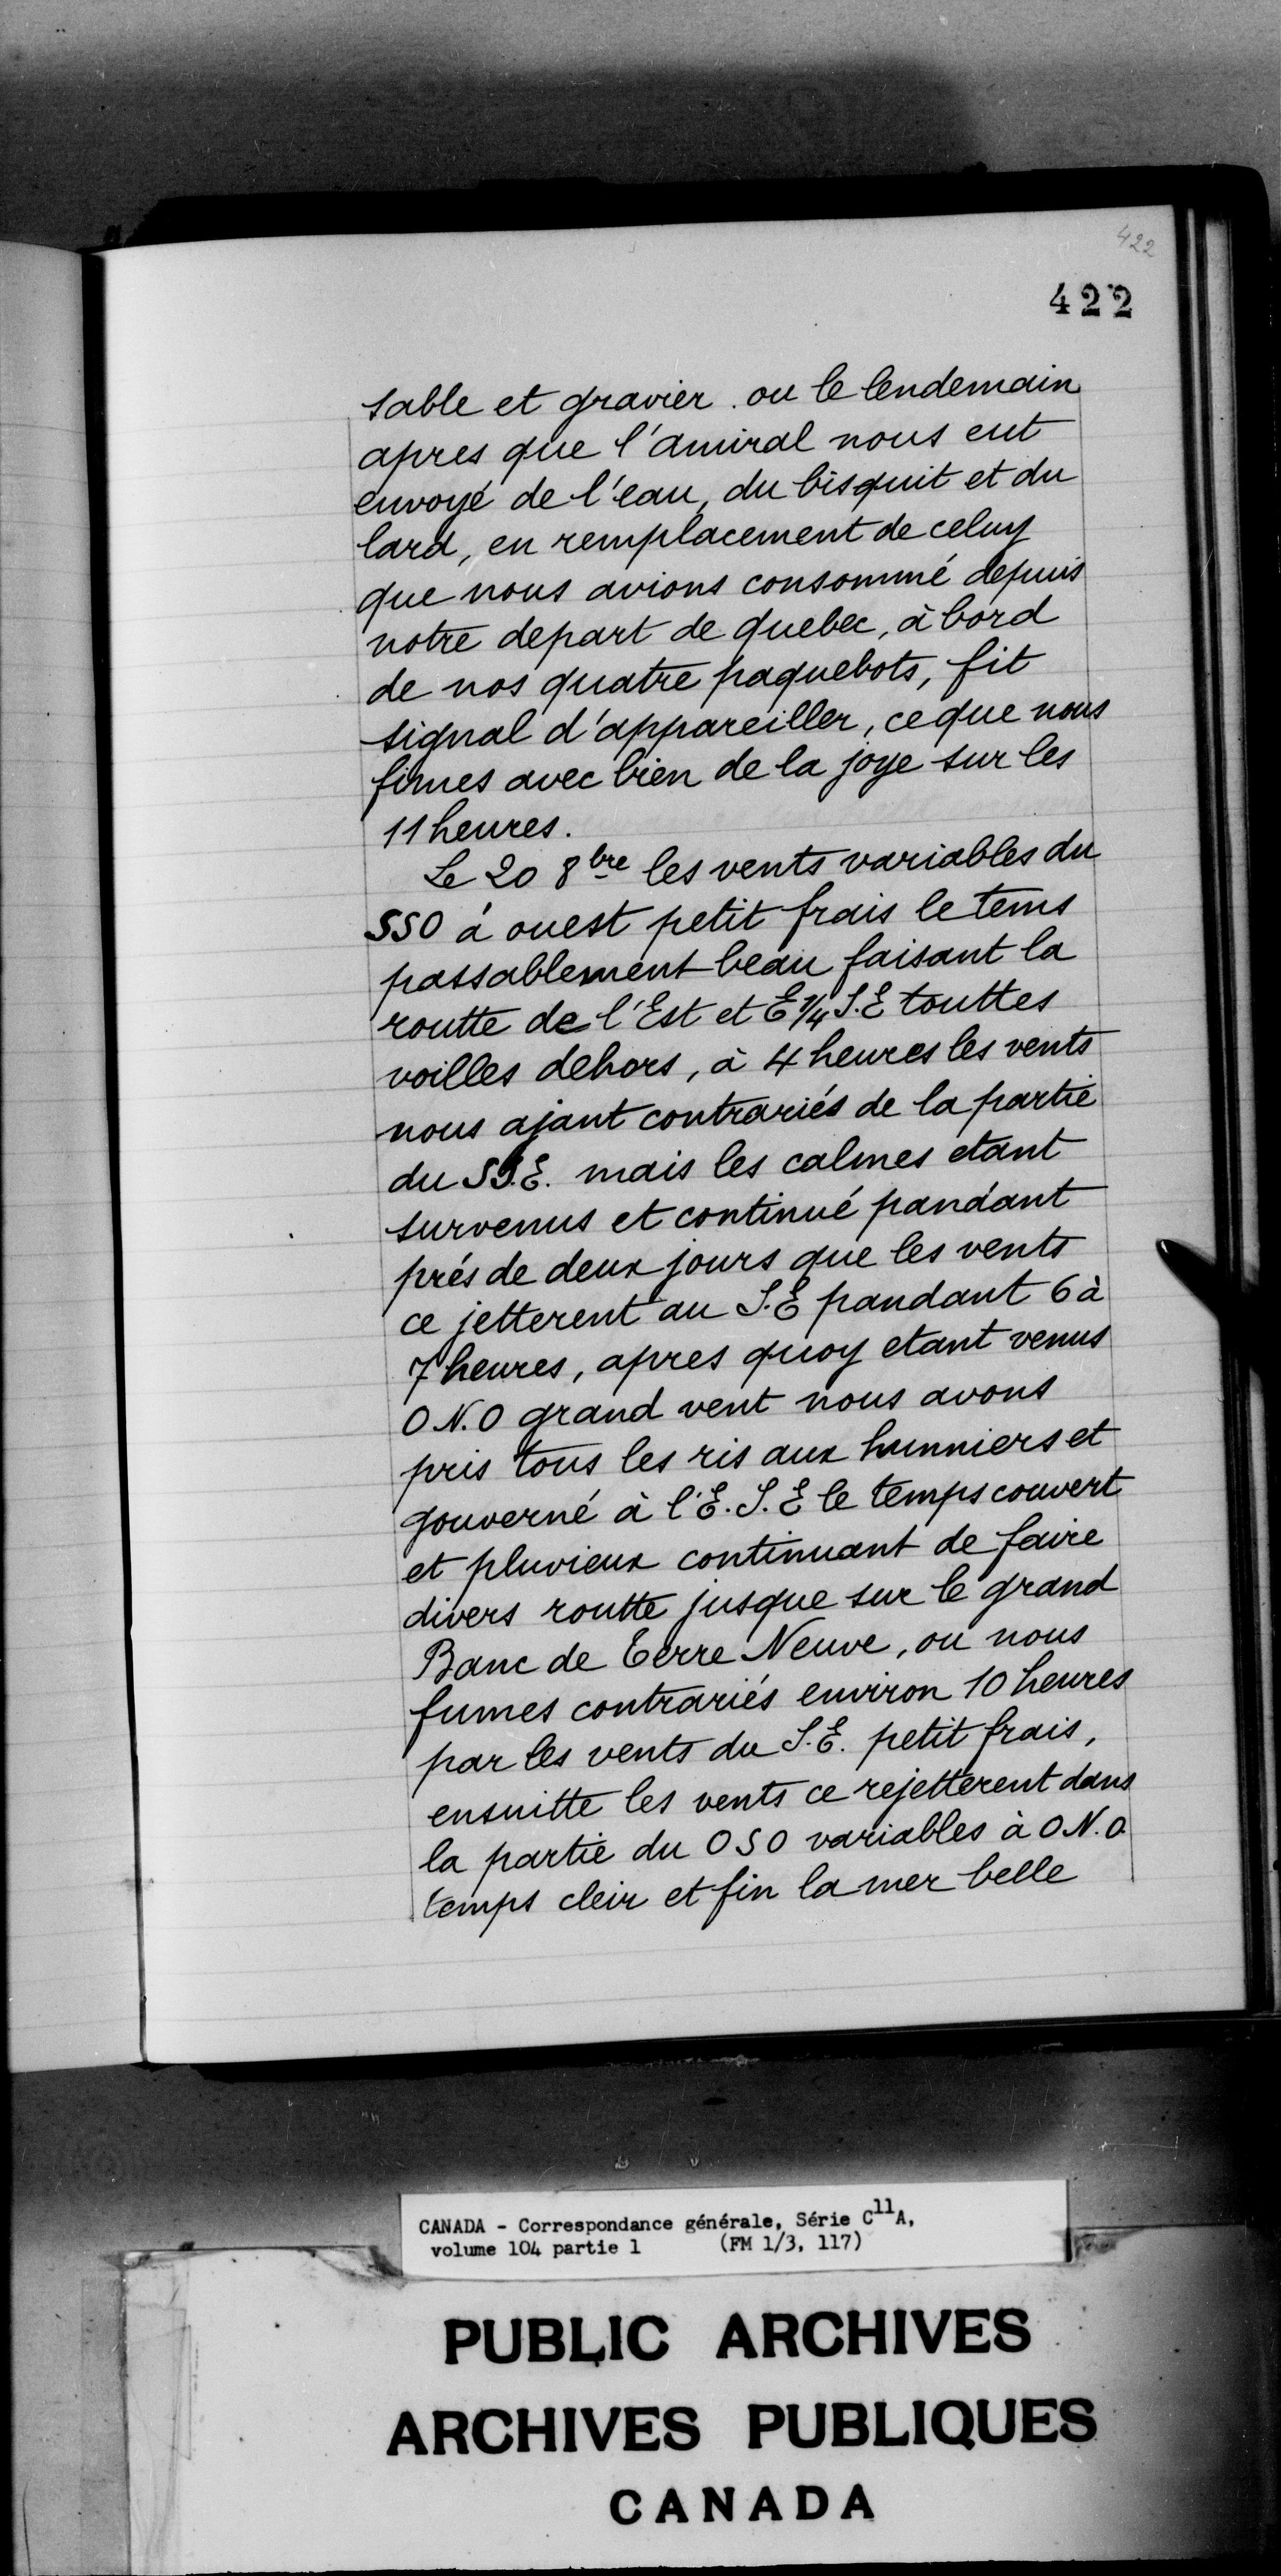 422
422
sable et gravier. ou le lendemain
apres que l'amiral nous eut
envoyé de l'eau, du bisquit et du
lard, en remplacement de celuy
que nous avions consommé depuis
notre depart de quebec, à bord
de nos quatre paquebots, fit
signal d'appareiller, ce que nous
fimes avec bien de la joye sur les
11 heures.
Le 20 8bre les vents variables du
SSO à ouest petit frais le tems
passablement beau faisant la
routte de l'Est et E 1/4 S.E touttes
voilles dehors, à 4 heures les vents
nous ajant contrariés de la partie
du SS.E. mais les calmes etant
survenus et continué pandant
prés de deux jours que les vents
ce jetterent au S.E pandant 6 à
7 heures, apres quoy etant venus
O N.O grand vent nous avons
pris tous les ris aux hunniers et
gouverné à l'E.S.E le temps couvert
et pluvieux continuant de faire
divers routte jusque sur le grand
Banc de Terre Neuve, ou nous
fumes contrariés environ 10 heures
par les vents du S.E. petit frais,
ensuitte les vents ce rejetterent dans
la partie du OSO variables à O N.O
temps cleir et fin la mer belle
CANADA - Correspondance générale, Série C11A,
volume 104 partie 1 (FM 1/3, 117)
PUBLIC ARCHIVES
ARCHIVES PUBLIQUES
CANADA